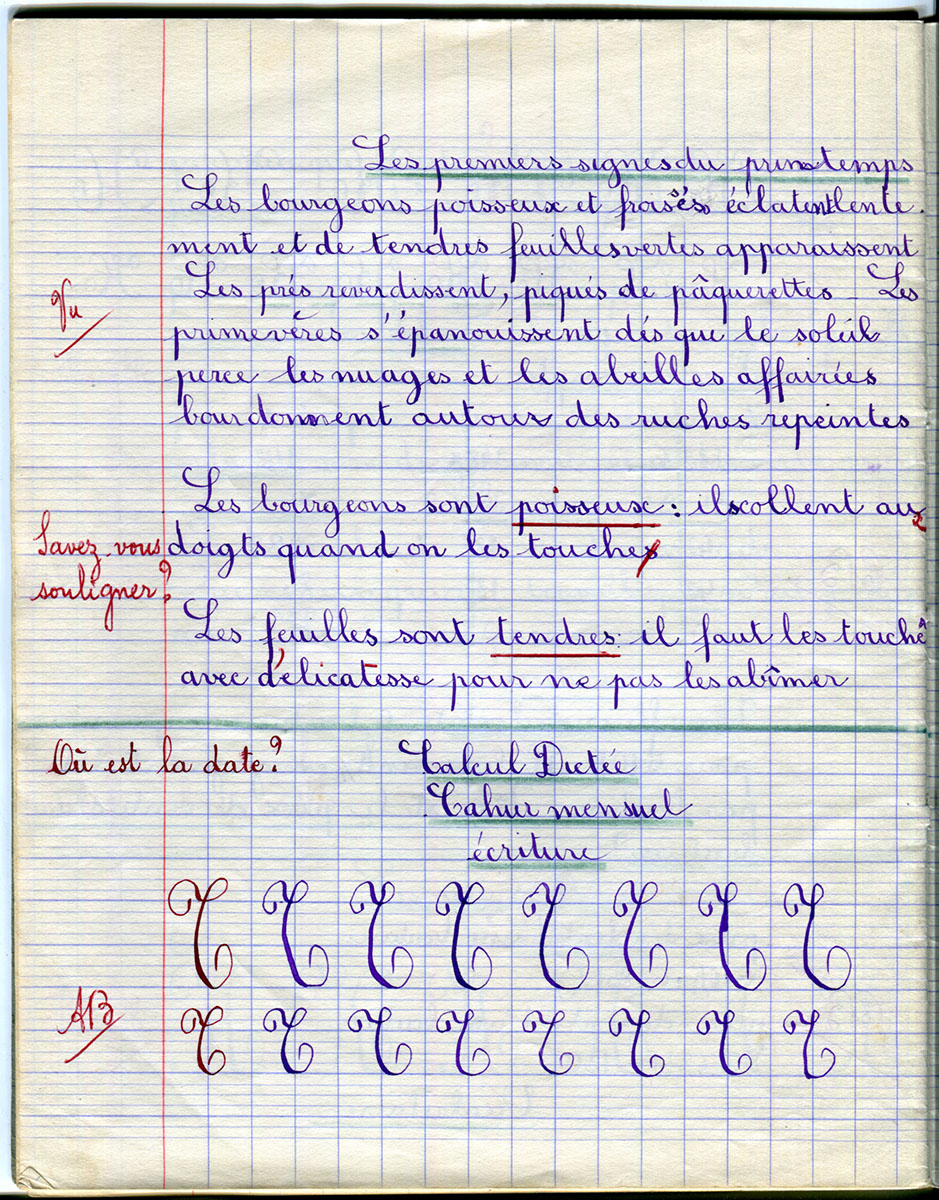 Les premiers signes du printemps
Les bourgeons poisseux et froisés éclatent lente-
ment et de tendres feuilles vertes apparaissent
Vu
Les prés reverdissent, piqués de pâquerettes - Les
primevères s'épanouissent dés que le soleil
perce les nuages et les abeilles affairées
bourdonnent autour des ruches repeintes
Les bourgeons sont poisseux : ils collent aux
Savez-vous
doigts quand on les touches
souligner ?
Les feuilles sont tendres : il faut les touché
avec délicatesse pour ne pas les abîmer
Où est la date ?
Calcul Dictée
Cahier mensuel
écriture
T T T T T T T T
AB
T T T T T T T T